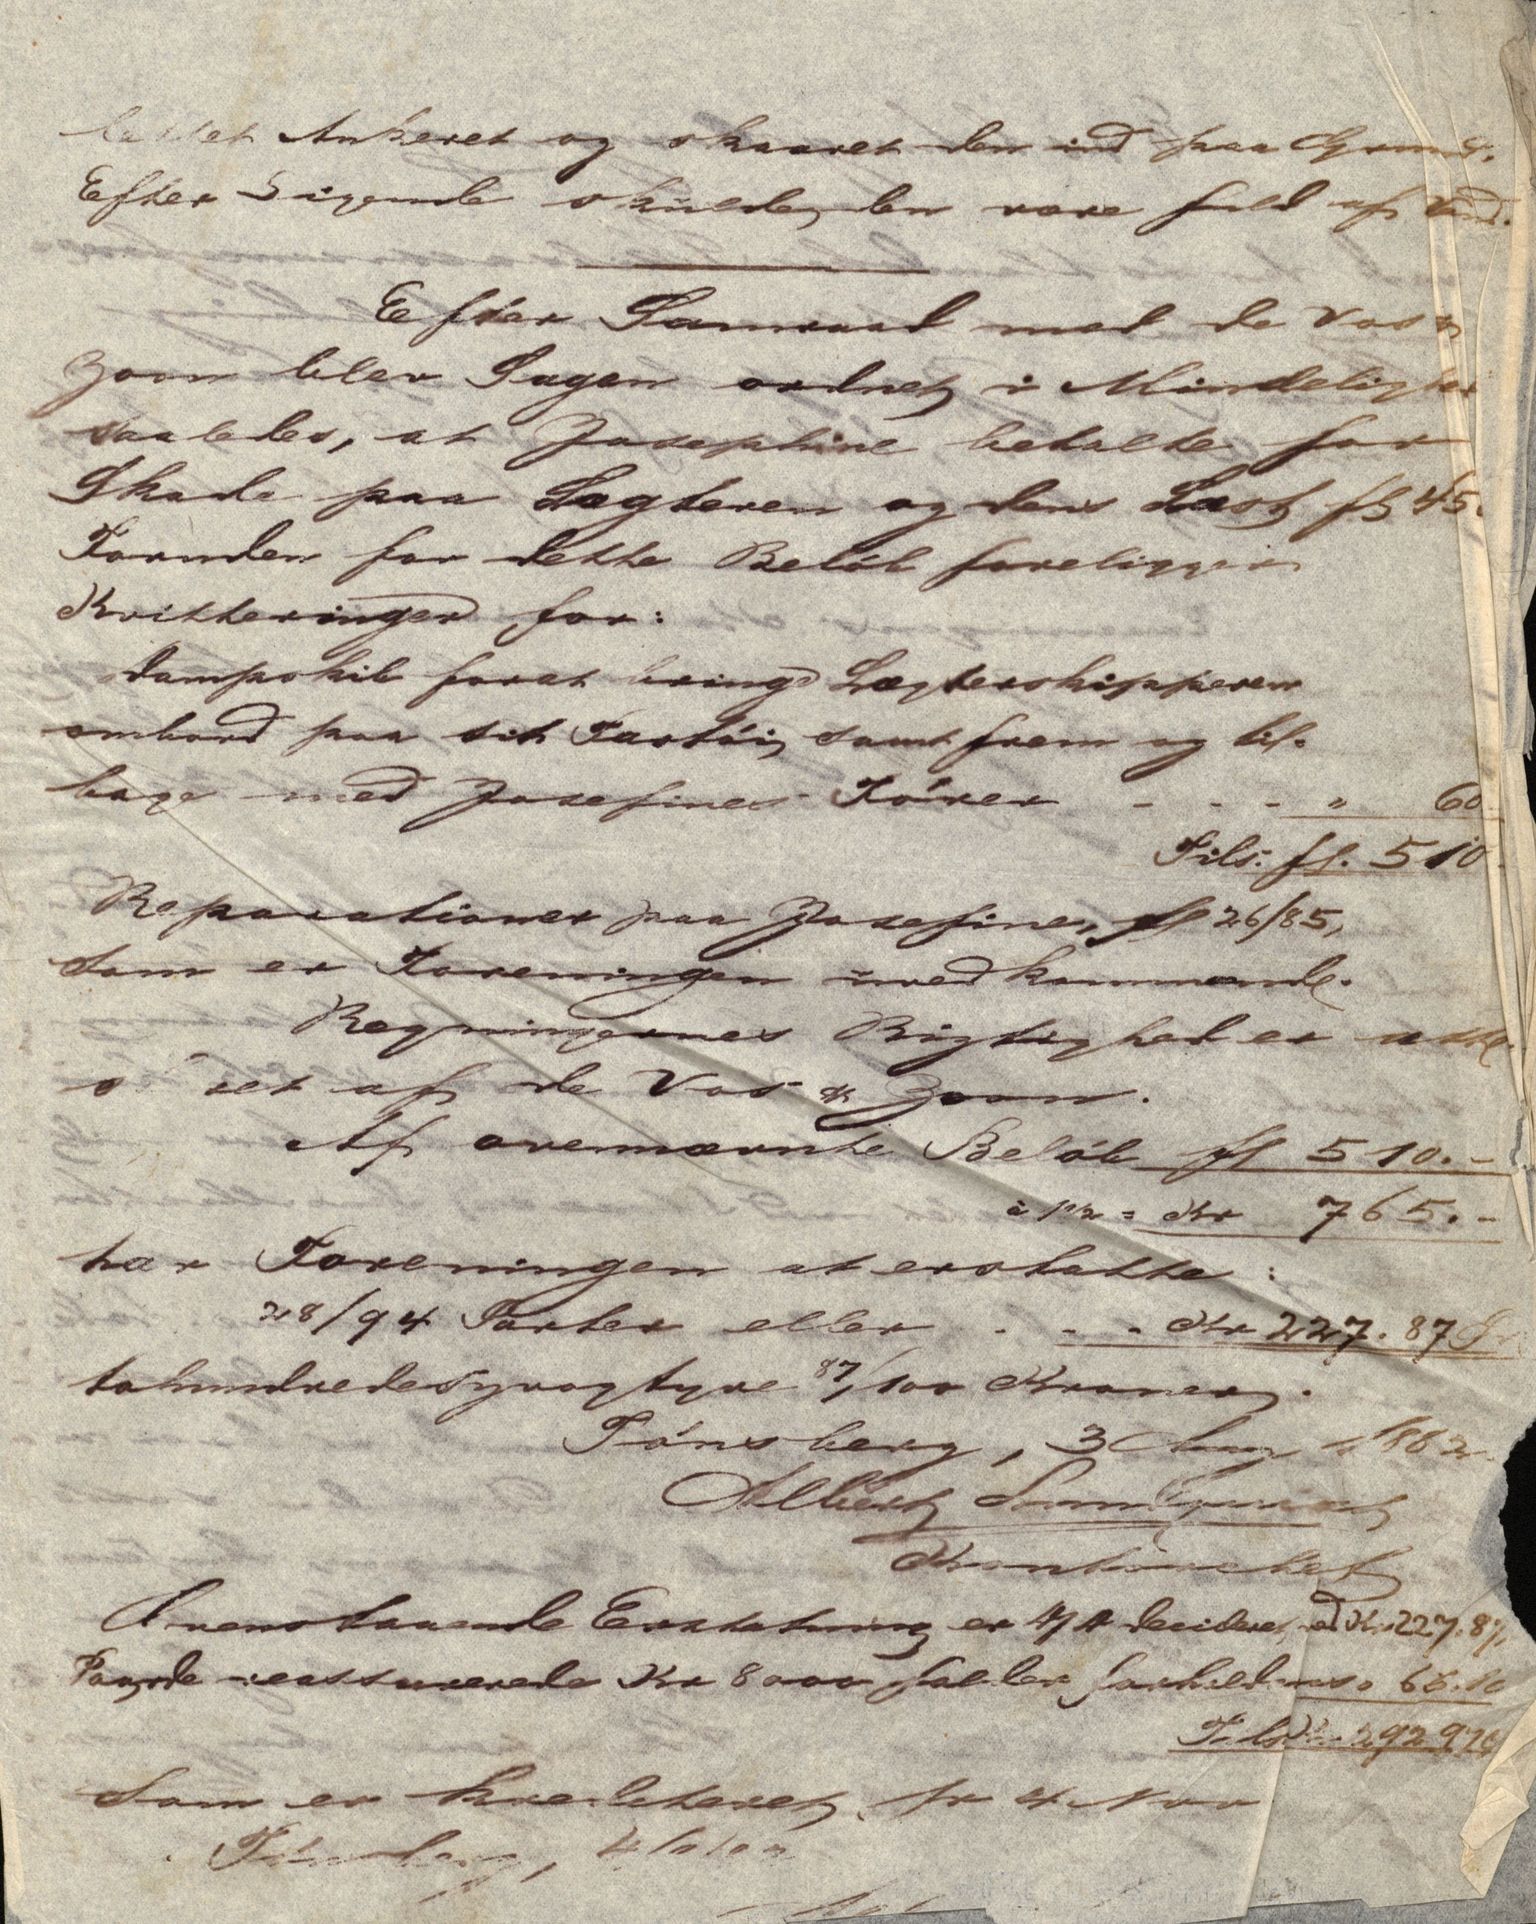 lettet Ankeret og skaaret den ind paa Grund.
Efter Sigende skulde den være fuld af Vand.
Efter Samraad med de Vos &
Zoon blev Sagen ordnet i Mindelighed
saaledes, at Josephine betalte for
Skade paa Lægteren og dens Last fl 45.
Foruden for dette Beløb foreligger
Kvitteringer for:
dampskib forat bringe Lægterskipperen
ombord paa sit Fartøi, samt frem og til-
bage med Josefines Fører - - - " 60
Tils. fl. 510.
Reparationer paa Josefine, fl 26/85,
som er Foreningen uvedkommende.
Regningernes Rigtighed er atte-
s ret af de Vos & Zoon.
Af ovennævnte Beløb fl 510.-
à 1 1/2 = Kr 765.-
har Foreningen at erstatte:
28/94 Parter eller . - - . Kr 227.87
tohundredesyvogtyve 87/100 Kroner.
Tönsberg, 3 1882
Albert
Ovenstaaende Erstatning er decideret Kr. 227.87
Paa de reassurerede Kr 8000 falder forholdsvs.
Tils Kr. 292
Som er krediteret pr 4 Nov
Tönsberg, 4/